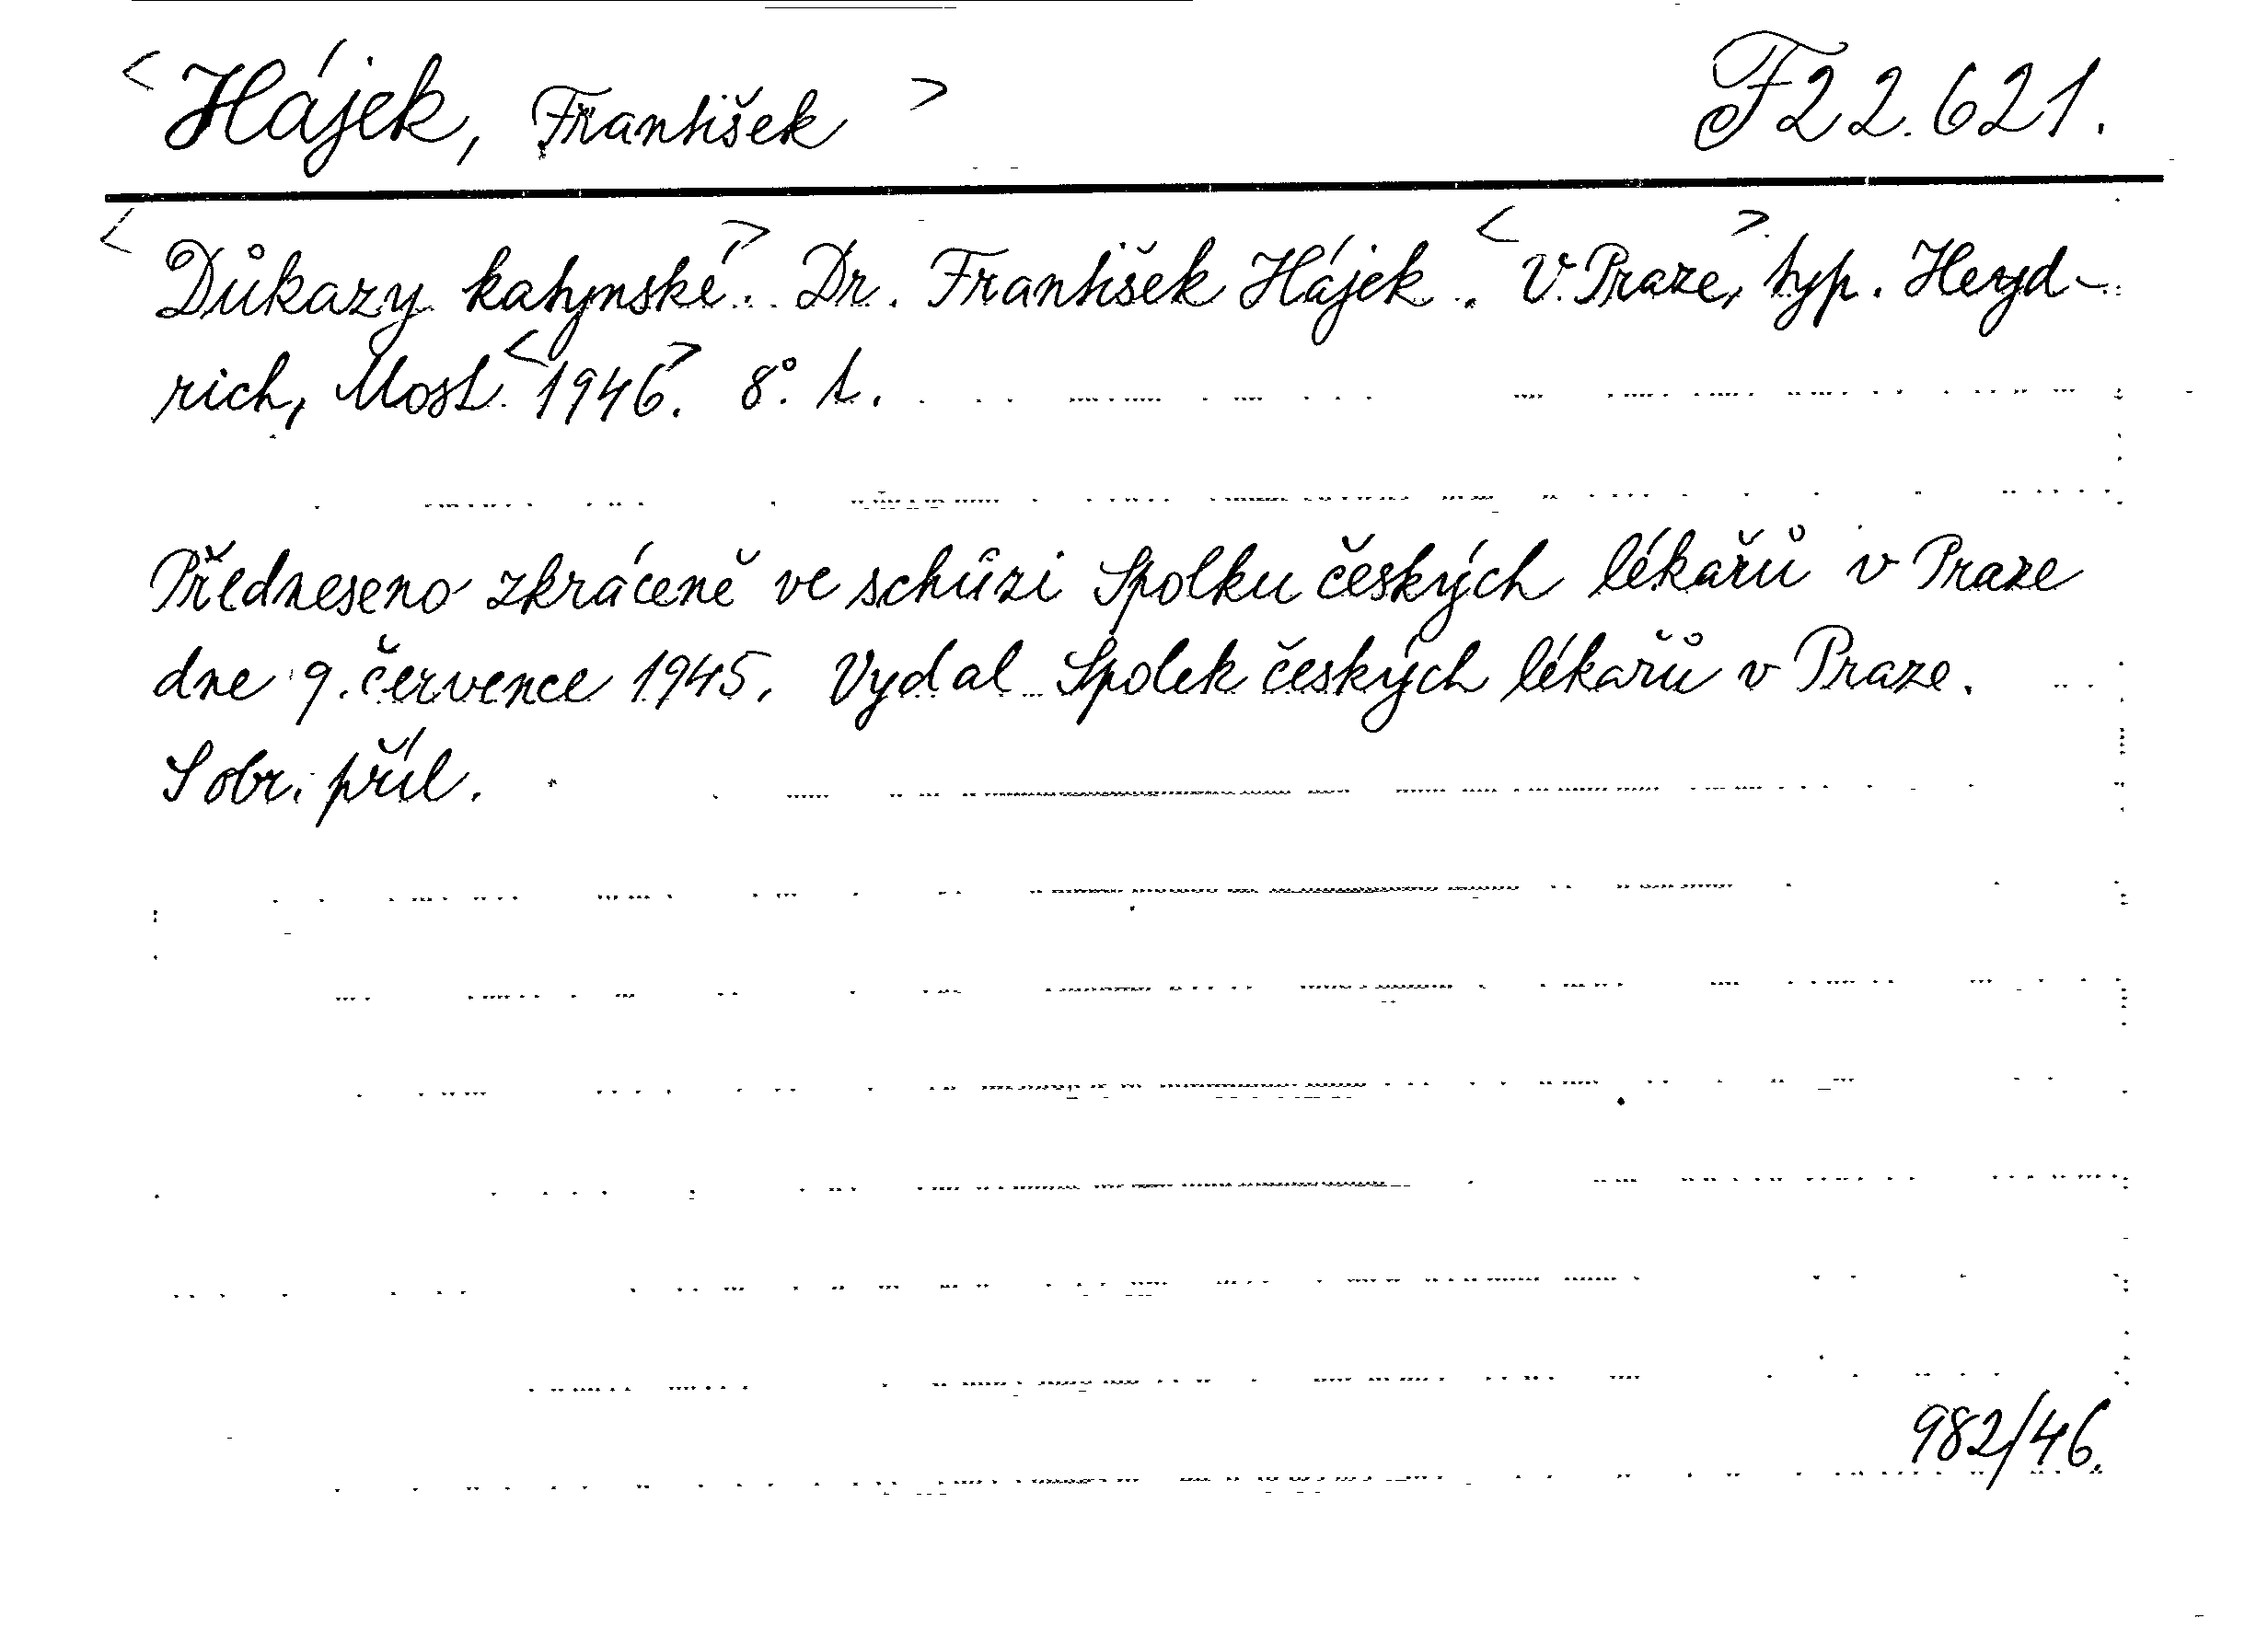 <Hájek, František> F 22.621.
<Důkazy katynské>. Dr. František Hájek. <V Praze>, typ. Heyd-
rich, Most <1946>. 8°. t.
Předneseno zkráceně ve schůzi Spolku českých lékařů v Praze
dne 9. července 1945. Vydal Spolek českých lékařů v Praze.
S obr. příl.
982/46.